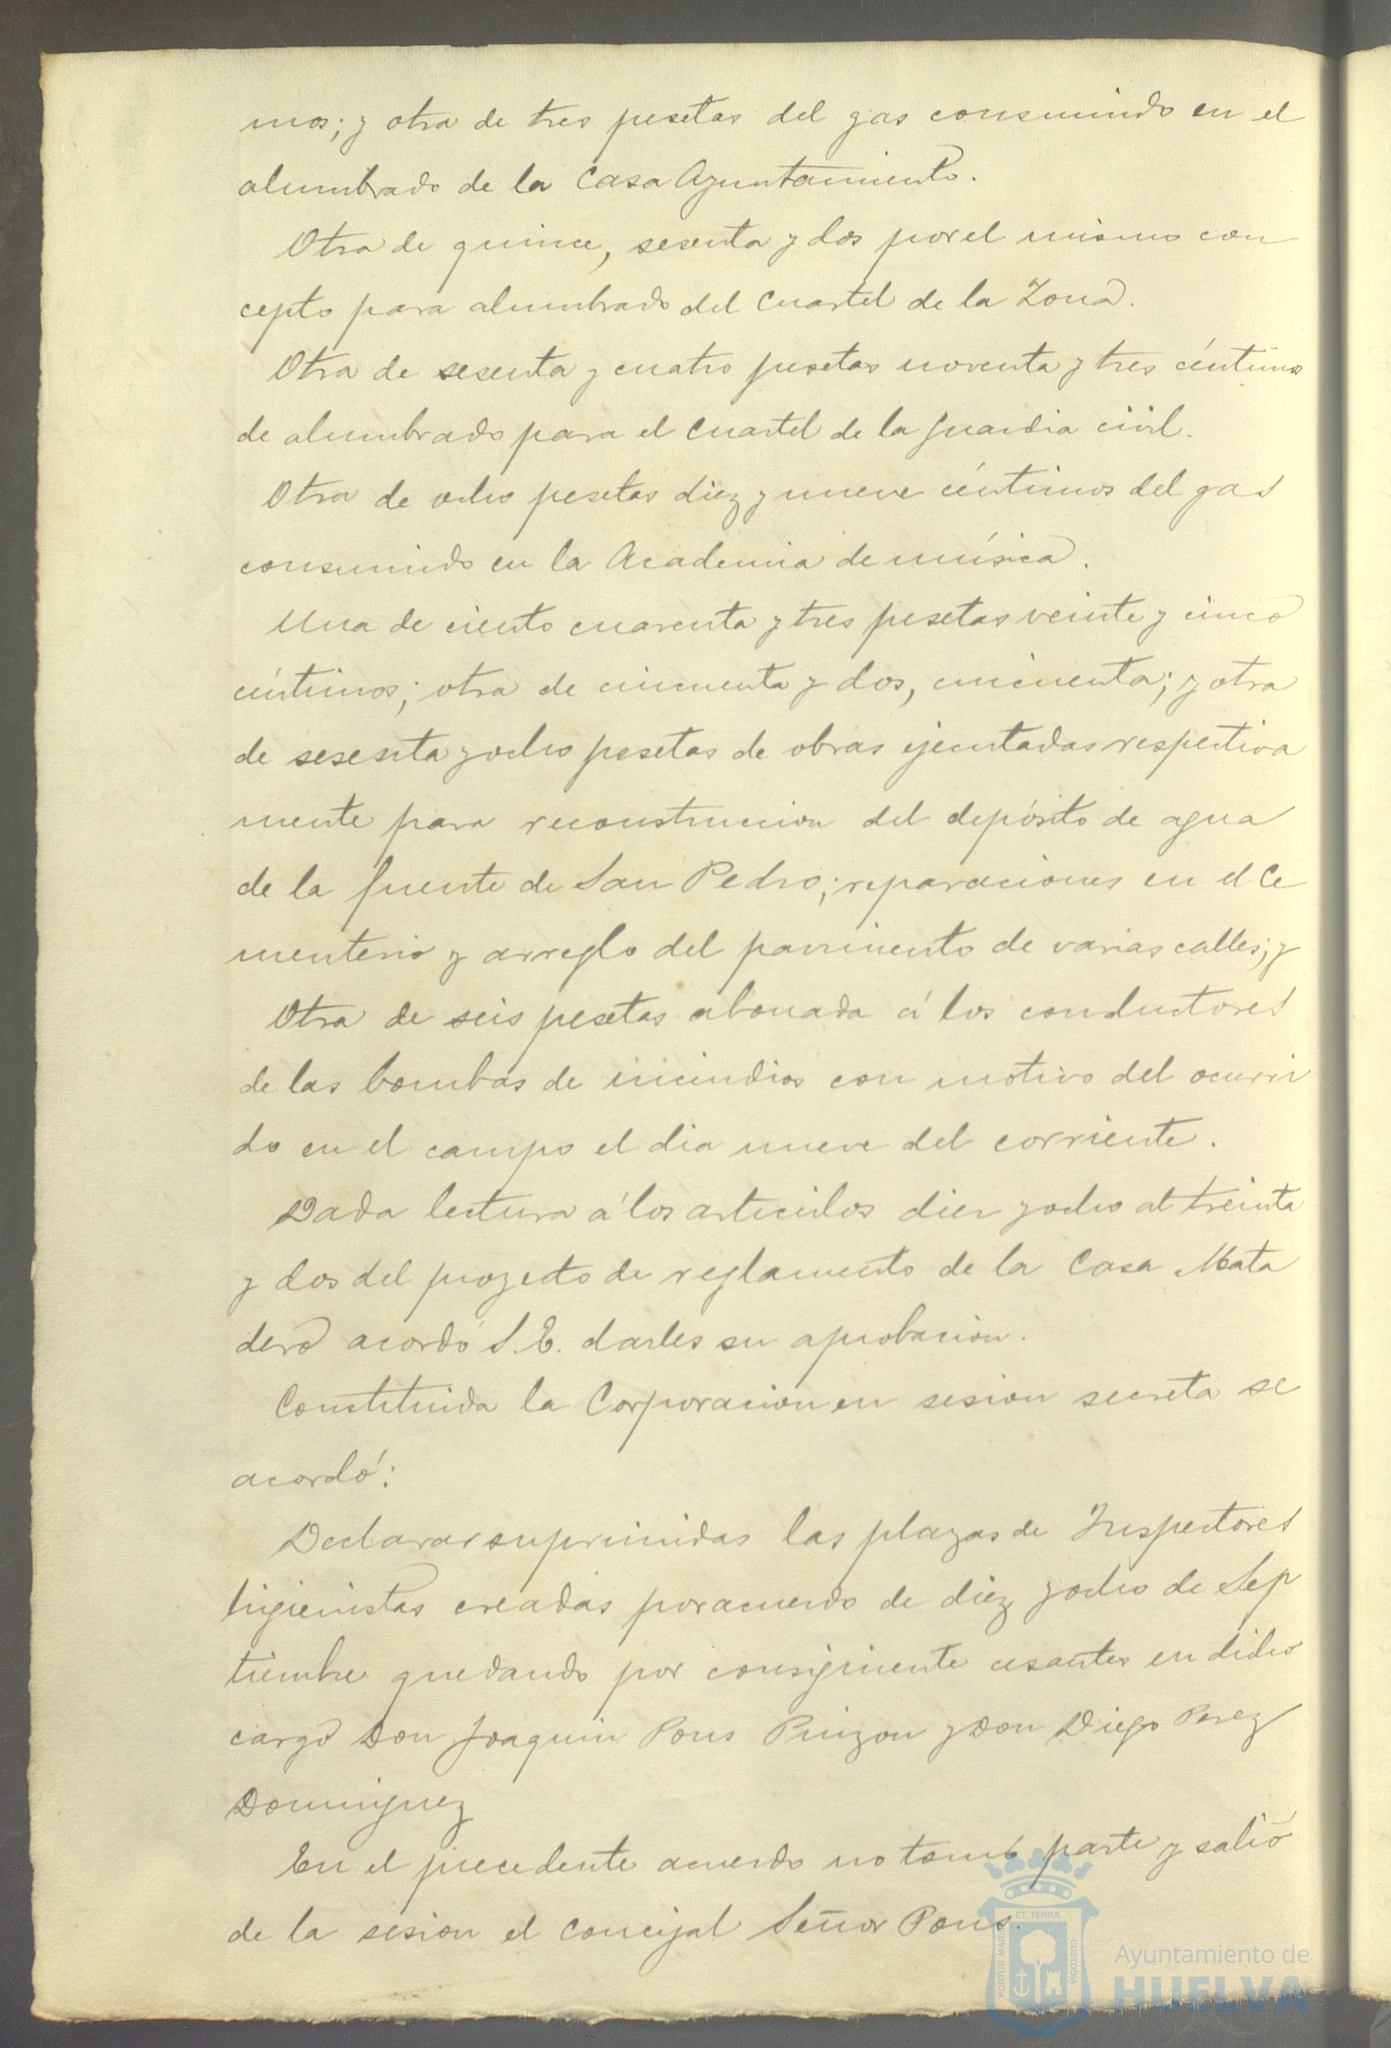 mos; y otra de tres pesetas del gas consumido en el
alumbrado de la Casa Ayuntamiento.
Otra de quince, sesenta y dos por el mismo con
cepto para alumbrado del Cuartel de la Zona.
Otra de sesenta y cuatro pesetas noventa y tres céntimos
de alumbrado para el Cuartel de la Guardia civil.
Otra de ocho pesetas diez y nueve céntimos del gas
consumido en la Academia de música.
Una de ciento cuarenta y tres pesetas veinte y cinco
céntimos; otra de cincuenta y dos, cincuenta; y otra
de sesenta y ocho pesetas de obras ejecutadas respectiva
mente para reconstruccion del depósito de agua
de la fuente de San Pedro; reparaciones en el Ce
menterio y arreglo del pavimento de varias calles; y
Otra de seis pesetas abonada á los conductores
de las bombas de incendios con motivo del ocurri
do en el campo el dia nueve del corriente.
Dada lectura á los articulos diez y ocho al treinta
y dos del proyecto de reglamento de la Casa Mata
dero acordó S. E. darles su aprobacion.
Constituida la Corporacion en sesion secreta se
acordó:
Declarar suprimidas las plazas de Inspectores
higienistas creadas por acuerdo de diez y ocho de Sep
tiembre quedando por consiguiente cesantes en dicho
cargo Don Joaquin Pons Pinzon y Don Diego Perez
Dominguez
En el precedente acuerdo no tomó parte y salió
de la sesion el concejal Señor Pons.
PORTUS MARIS ET TERRÆ CUSTODIA
Ayuntamiento de
HUELVA